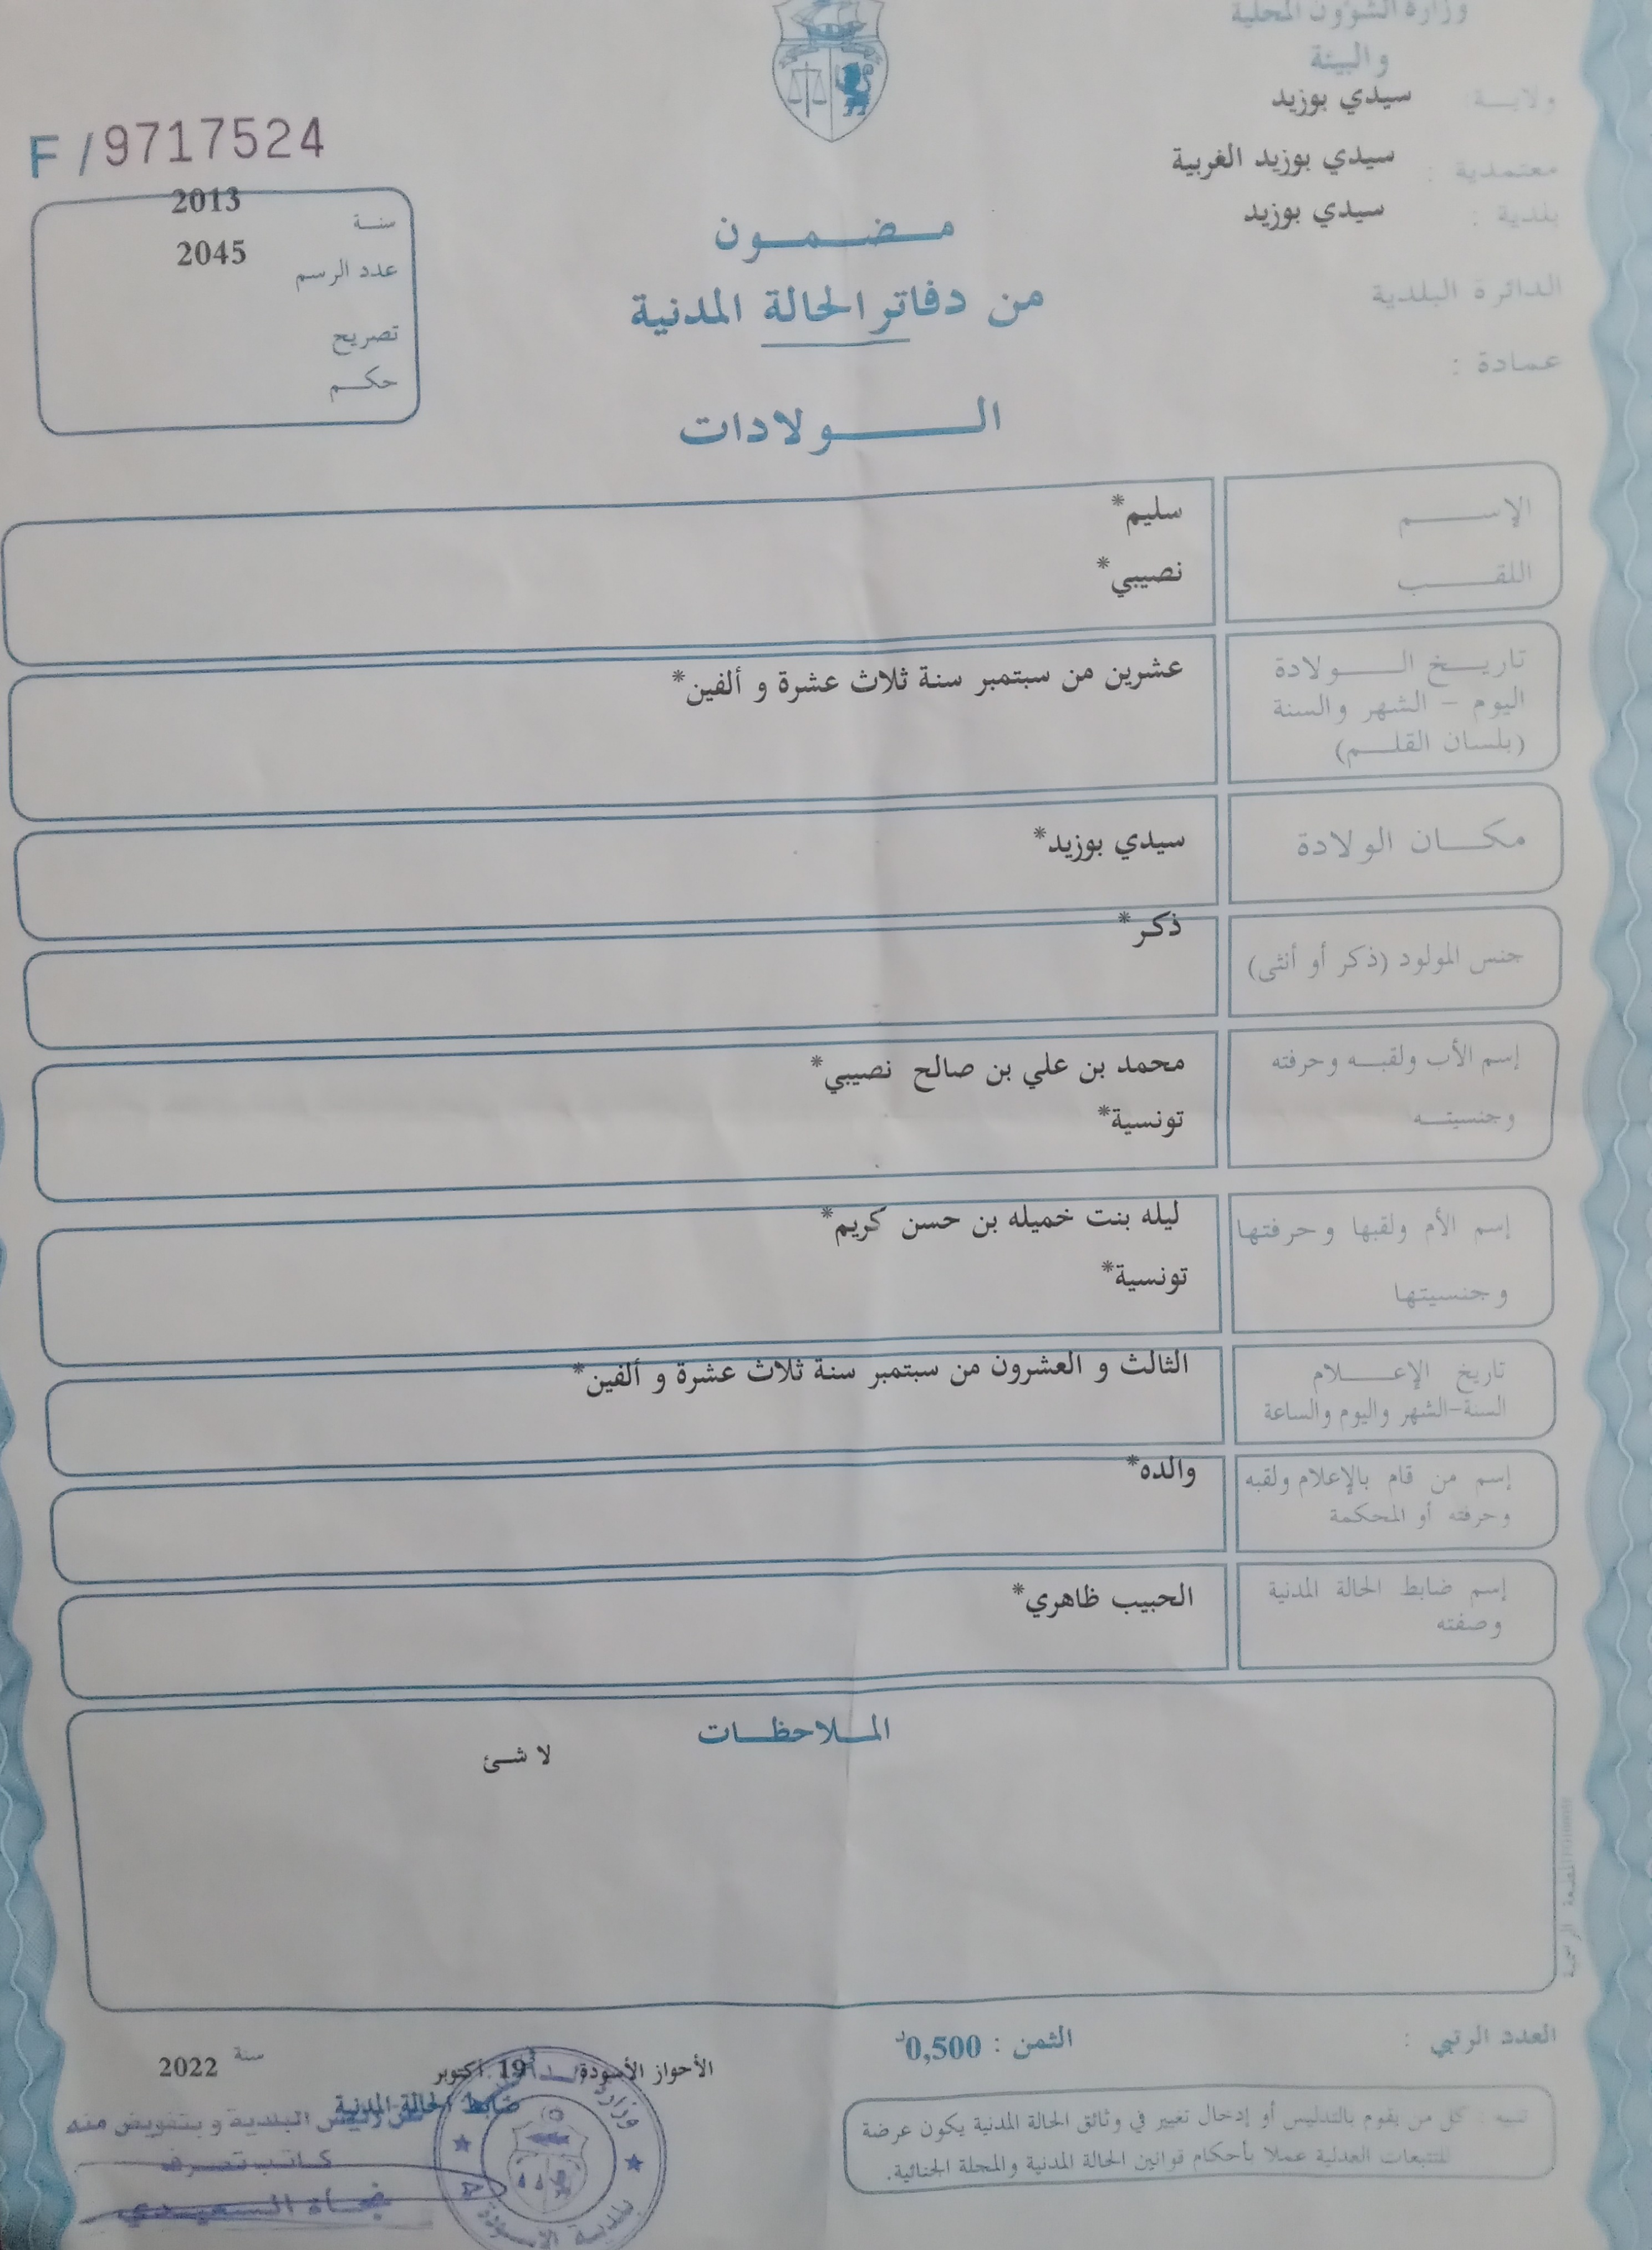 وزارة الشؤون المحلية
والبيئة
ولايــة: سيدي بوزيد
معتمدية : سيدي بوزيد الغربية
بلدية : سيدي بوزيد
الدائرة البلدية
عمادة :
F / 9717524
سنة 2013
عدد الرسم 2045
تصريح
حكم
مضمون
من دفاتر الحالة المدنية
الولادات
الإسم سليم*
اللقب نصيبي*
تاريخ الولادة عشرين من سبتمبر سنة ثلاث عشرة و ألفين*
اليوم - الشهر والسنة
(بلسان القلم)
مكان الولادة سيدي بوزيد*
جنس المولود (ذكر أو أنثى) ذكر*
إسم الأب ولقبه وحرفته محمد بن علي بن صالح نصيبي*
وجنسيته تونسية*
إسم الأم ولقبها وحرفتها ليله بنت خميله بن حسن كريم*
وجنسيتها تونسية*
تاريخ الإعلام الثالث و العشرون من سبتمبر سنة ثلاث عشرة و ألفين*
السنة-الشهر واليوم والساعة
إسم من قام بالإعلام ولقبه والده*
وحرفته أو المحكمة
إسم ضابط الحالة المدنية الحبيب ظاهري*
وصفته
الملاحظات
لا شئ
العدد الرتبي :
الثمن : 0,500د
الأحواز الأسودة 19 أكتوبر سنة 2022
ضابط الحالة المدنية
عن رئيس البلدية و بتفويض منه
كاتب تصرف
نجاة السعيدي
تنبيه : كل من يقوم بالتدليس أو إدخال تغيير في وثائق الحالة المدنية يكون عرضة
للتتبعات العدلية عملا بأحكام قوانين الحالة المدنية والمجلة الجنائية.